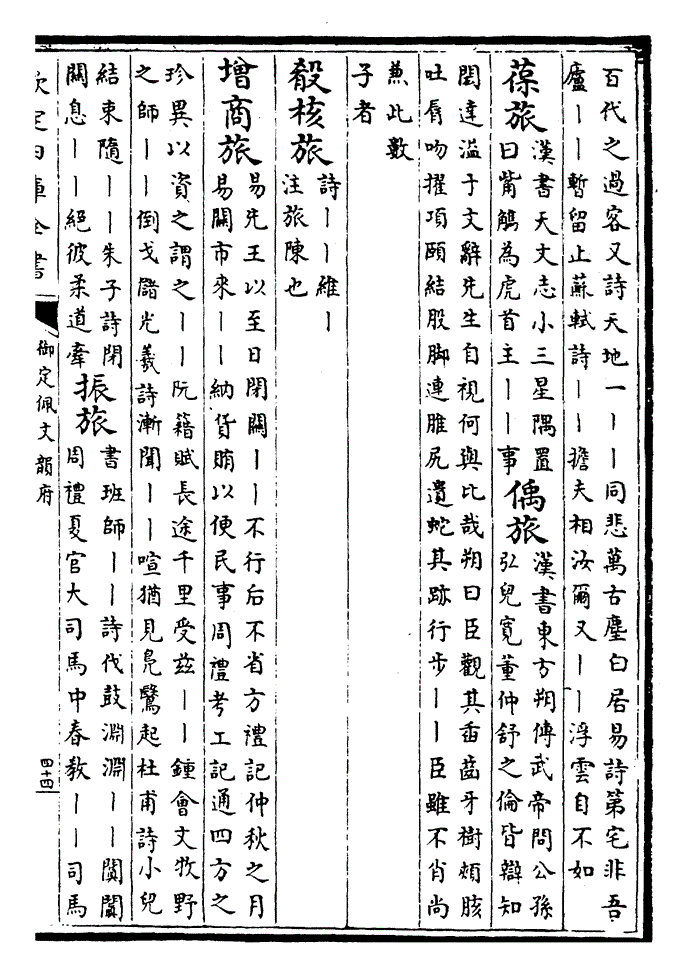 百代之過客又詩天地一丨丨同悲萬古塵白居易詩第宅非吾
廬丨丨暫留止蘇軾詩丨丨擔夫相汝爾又丨丨浮雲自不如
葆旅
漢書天文志小三星隅置
曰觜觿為虎首主丨丨事
偊旅
漢書東方朔傳武帝問公孫
弘兒寬董仲舒之倫皆辯知
閎達溢于文辭先生自視何與比哉朔曰臣觀其臿齒牙樹頰胲
吐脣吻擢項頤結股脚連脽尻遺蛇其跡行步丨丨臣雖不肖尚
兼此數
子者
殽核旅
詩丨丨維丨
注旅陳也
增商旅
易先王以至日閉關丨丨不行后不省方禮記仲秋之月
易關市來丨丨納貨賄以便民事周禮考工記通四方之
珍異以資之謂之丨丨阮籍賦長途千里受茲丨丨鍾會文牧野
之師丨丨倒戈儲光羲詩漸聞丨丨喧猶見鳧鷖起杜甫詩小兒
結束隨丨丨朱子詩閉
關息丨丨絕彼柔道牽
振旅
書班師丨丨詩伐鼓淵淵丨丨闐闐
周禮夏官大司馬中春教丨丨司馬
欽定四庫全書
御定佩文韻府
四十四